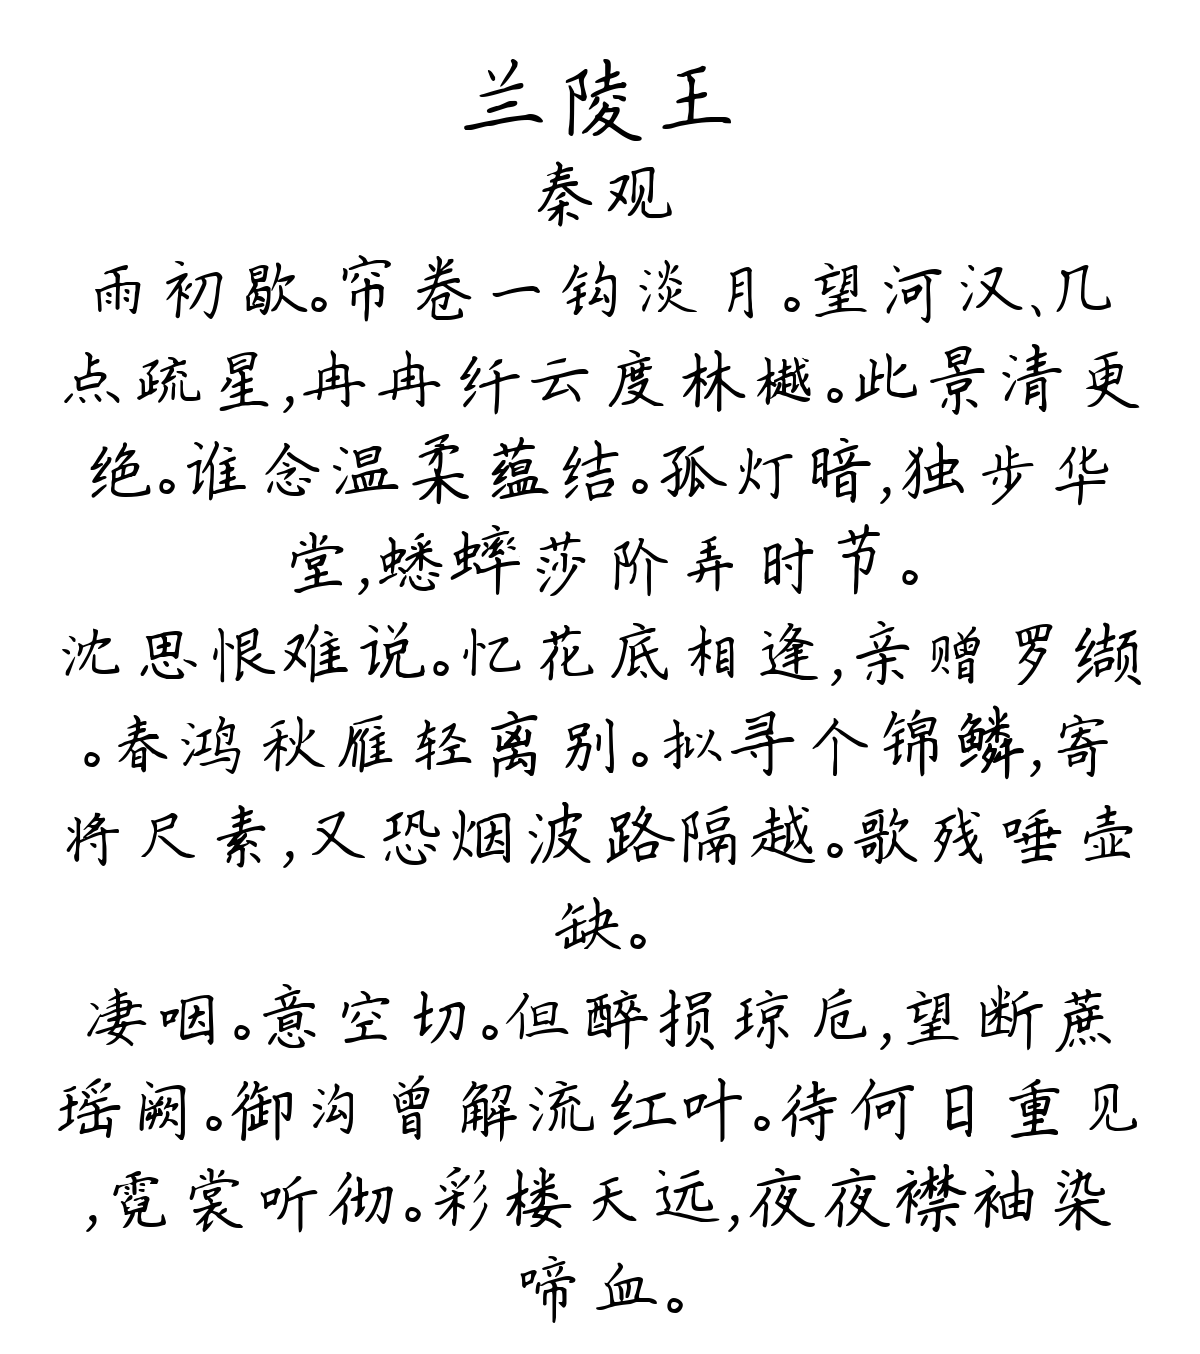 兰陵王
秦观
雨初歇。帘卷一钩淡月。望河汉、几
点疏星,冉冉纤云度林樾。此景清更
绝。谁念温柔蕴结。孤灯暗,独步华
堂,蟋蟀莎阶弄时节。
沈思恨难说。忆花底相逢,亲赠罗缬
。春鸿秋雁轻离别。拟寻个锦鳞,寄
将尺素,又恐烟波路隔越。歌残唾壶
缺。
凄咽。意空切。但醉损琼卮,望断蔗
瑶阙。御沟曾解流红叶。待何日重见
,霓裳听彻。彩楼天远,夜夜襟袖染
啼血。